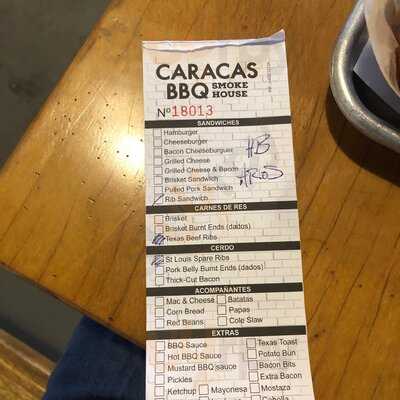 CARACAS
BBQ SMOKE HOUSE
Nº 18013
SANDWICHES
Hamburger
Cheeseburger
Bacon Cheeseburguer
Grilled Cheese
Grilled Cheese & Bacon
Brisket Sandwich
Pulled Pork Sandwich
Rib Sandwich
HB
CARNES DE RES
Brisket
Brisket Burnt Ends (dados)
Texas Beef Ribs
CERDO
St Louis Spare Ribs
Pork Belly Burnt Ends (dados)
Thick-Cut Bacon
ACOMPAÑANTES
Mac & Cheese Batatas
Corn Bread Papas
Red Beans Cole Slaw
EXTRAS
BBQ Sauce Texas Toast
Hot BBQ Sauce Potato Bun
Mustard BBQ sauce Bacon Bits
Pickles Extra Bacon
Ketchup Mayonesa Mostaza